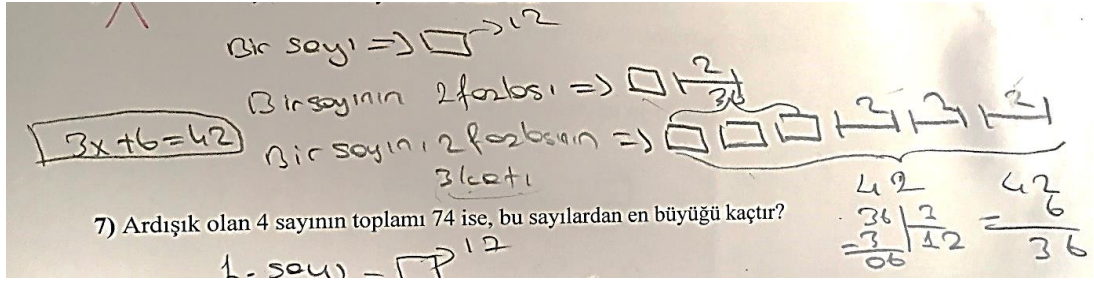 Bir sayı => □ → 12
Bir sayının 2 fazlası => □ 2
36
3x+6=42
Bir sayını 2 fazlasının => □ □ □ 2 2 2
3 katı
42
42
36 | 3
6
= 3 | 12
= 36
06
7) Ardışık olan 4 sayının toplamı 74 ise, bu sayılardan en büyüğü kaçtır?
1. sayı - □ 17